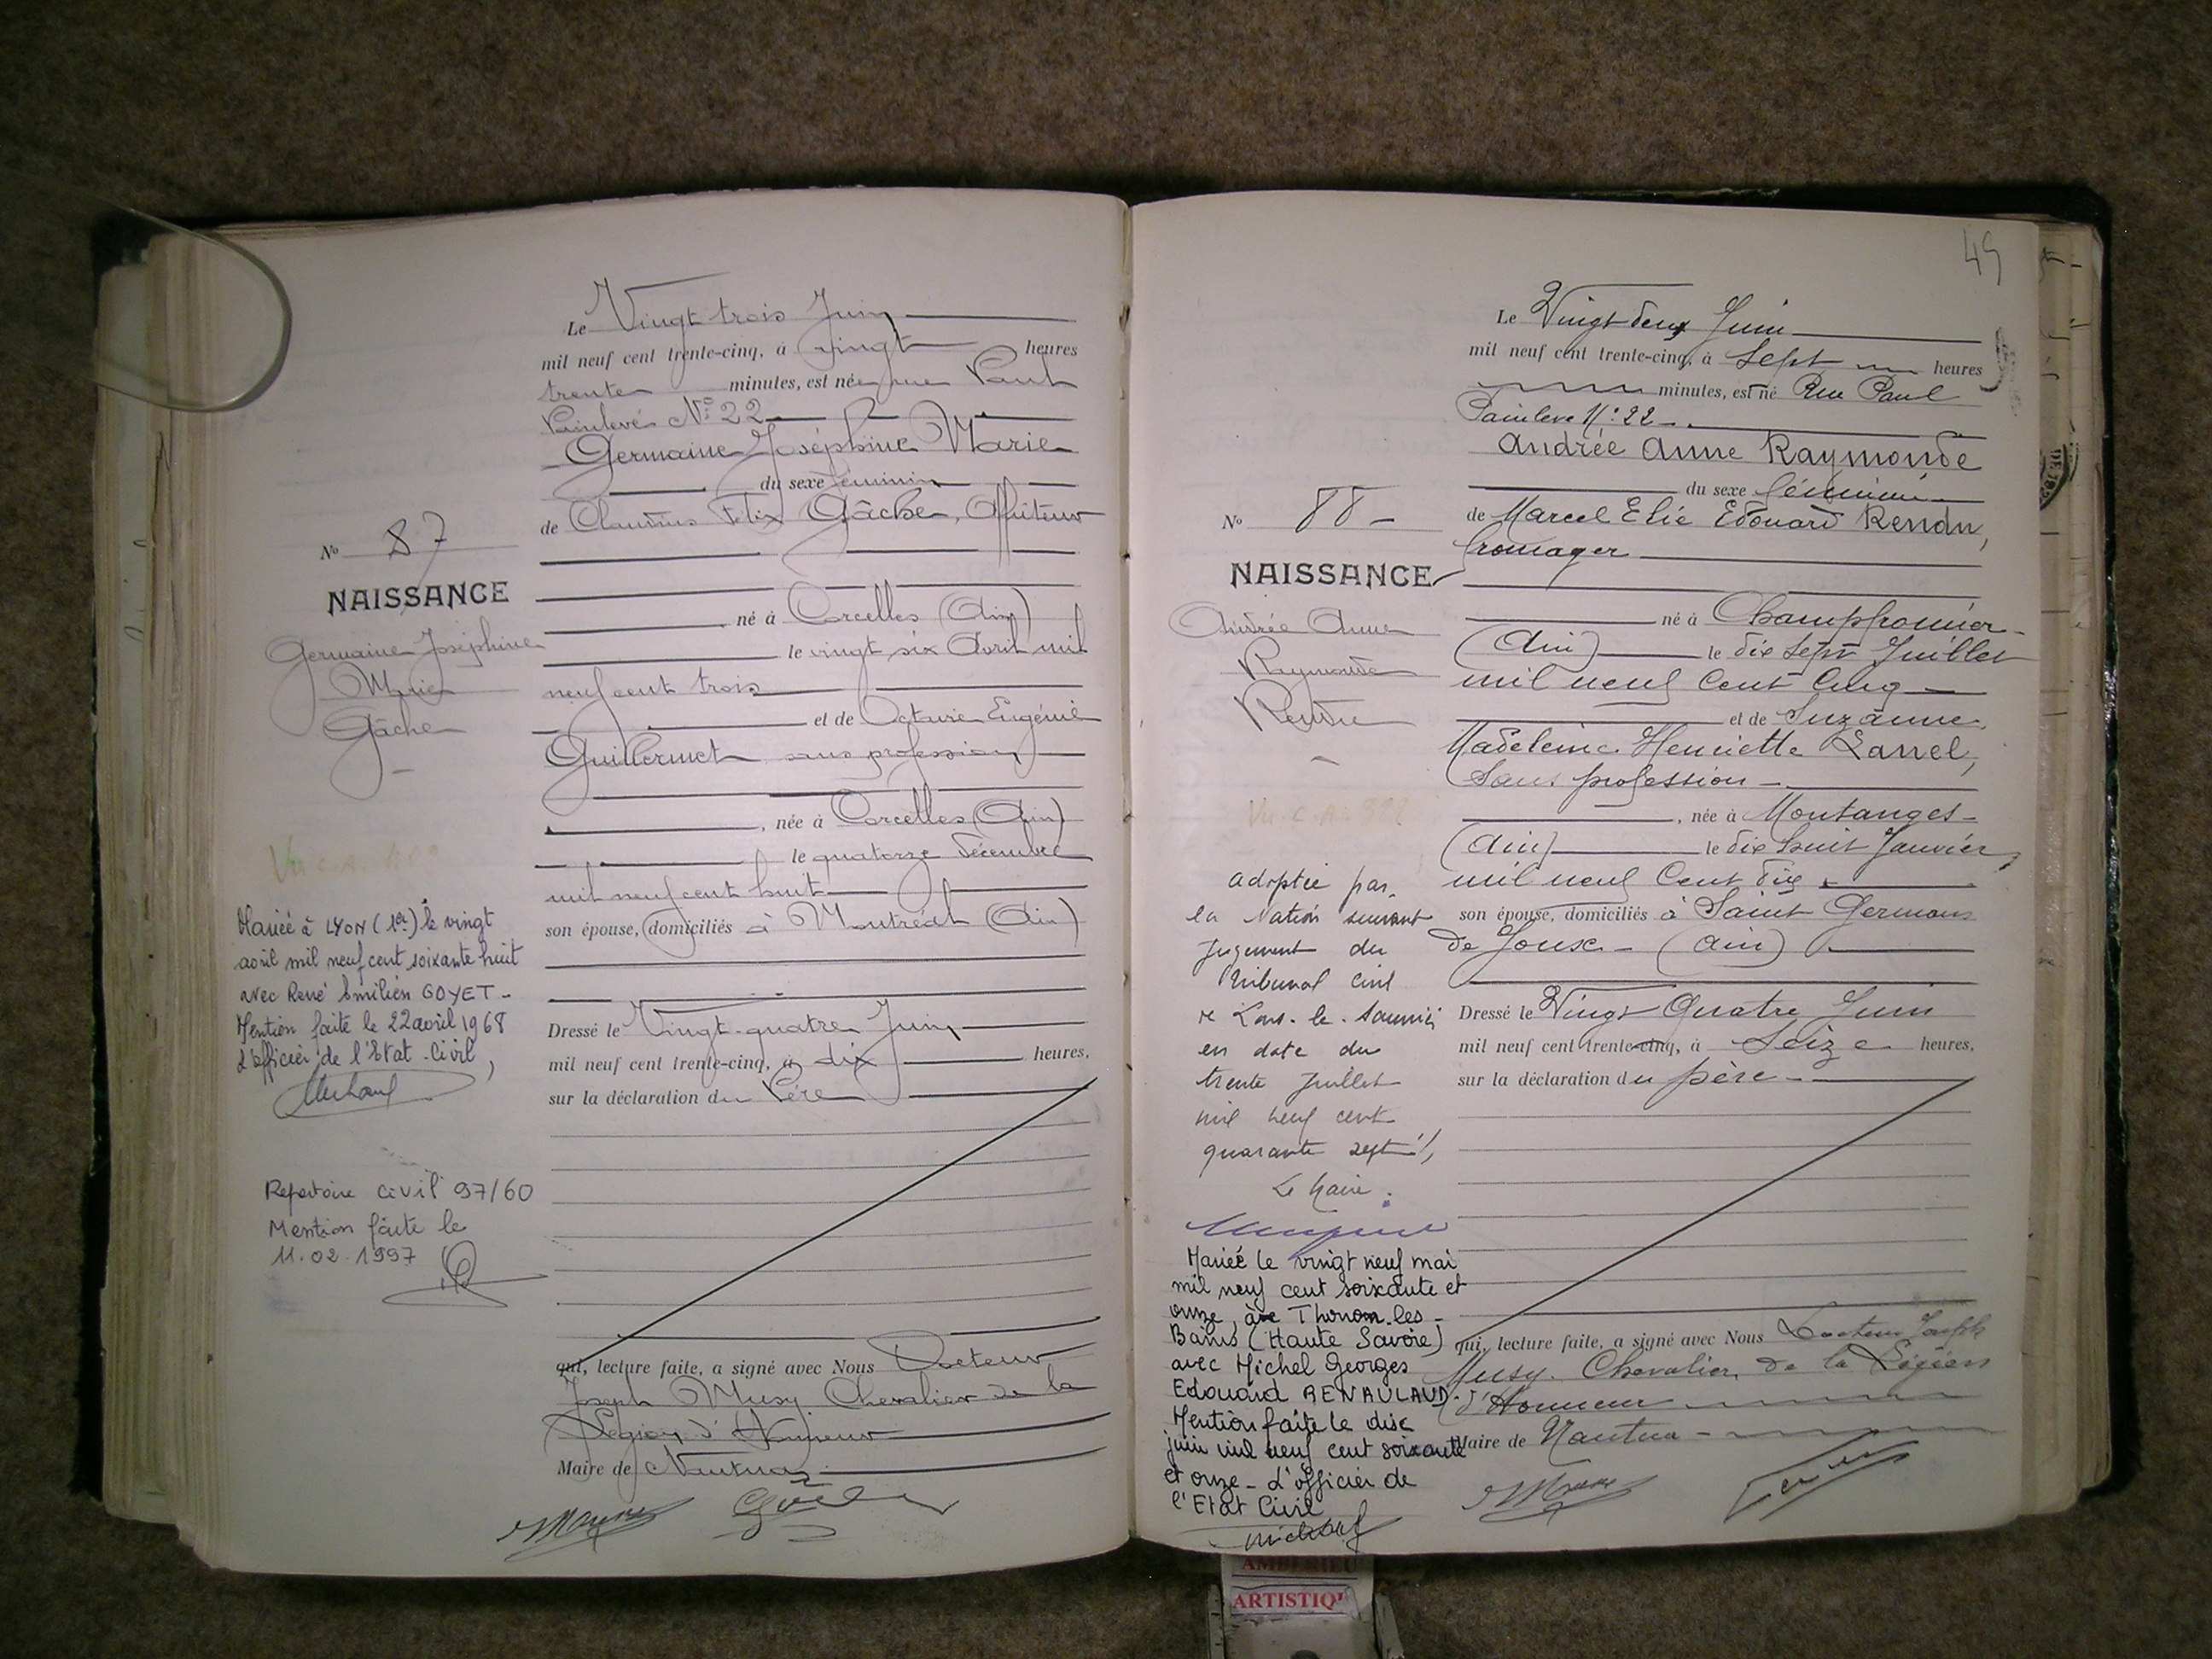 Le Vingt trois Juin
mil neuf cent trente-cinq, à vingt heures
trente minutes, est née rue Paul
Painlevé N° 22
Germaine Joséphine Marie
du sexe féminin
de Claudius Felix Gâche, Affûteur
né à Corcelles (Ain)
le vingt six Avril mil
neuf cent trois
et de Octavie Eugénie
Guillermet sans profession
, née à Corcelles (Ain)
le quatorze Décembre
mil neuf cent huit
son épouse, domiciliés à Montréal (Ain)
Dressé le Vingt-quatre Juin
mil neuf cent trente-cinq, à dix heures,
sur la déclaration du Père
qui, lecture faite, a signé avec Nous Docteur
Joseph Musy Chevalier de la
Légion d'Honneur
Maire de Nantua
N° 87
NAISSANCE
Germaine Joséphine
Marie
Gâche
Mariée à LYON (1er) le vingt
avril mil neuf cent soixante huit
avec René Emilien GOYET -
Mention faite le 22 avril 1968
L'officier de l'Etat-Civil,
Repertoire civil 97/60
Mention faite le
11.02.1997
49
Le Vingt deux Juin
mil neuf cent trente-cinq, à Sept heures
minutes, est né Rue Paul
Painleve N° 22
Andrée Anne Raymonde
du sexe féminin
de Marcel Elie Edouard Rendu,
fromager
né à Champfromier
(Ain) le dix sept Juillet
mil neuf cent cinq
et de Suzanne
Madeleine Henriette
Sans profession
, née à Montanges
(Ain) le dix huit Janvier
mil neuf Cent dix
son épouse, domiciliés à Saint Germain
de Joux - (Ain)
Dressé le Vingt Quatre Juin
mil neuf cent trente-cinq, à Seize heures,
sur la déclaration du père
qui, lecture faite, a signé avec Nous Docteur Joseph
Musy. Chevalier de la Légion
d'Honneur
Maire de Nantua
N° 88
NAISSANCE
Andrée Anne
Raymonde
Rendu
Adoptée par
la Nation suivant
jugement du
Tribunal Civil
de Lons-le-Saunier
en date du
trente juillet
mil neuf cent
quarante sept
Le Maire
Mariée le vingt neuf mai
mil neuf cent soixante et
onze, à Thonon-les-
Bains (Haute Savoie)
avec Michel Georges
Edouard RENAULAUD.
Mention faite le dix
juin mil neuf cent soixante
et onze - L'officier de
l'Etat Civil
ARTISTIQ